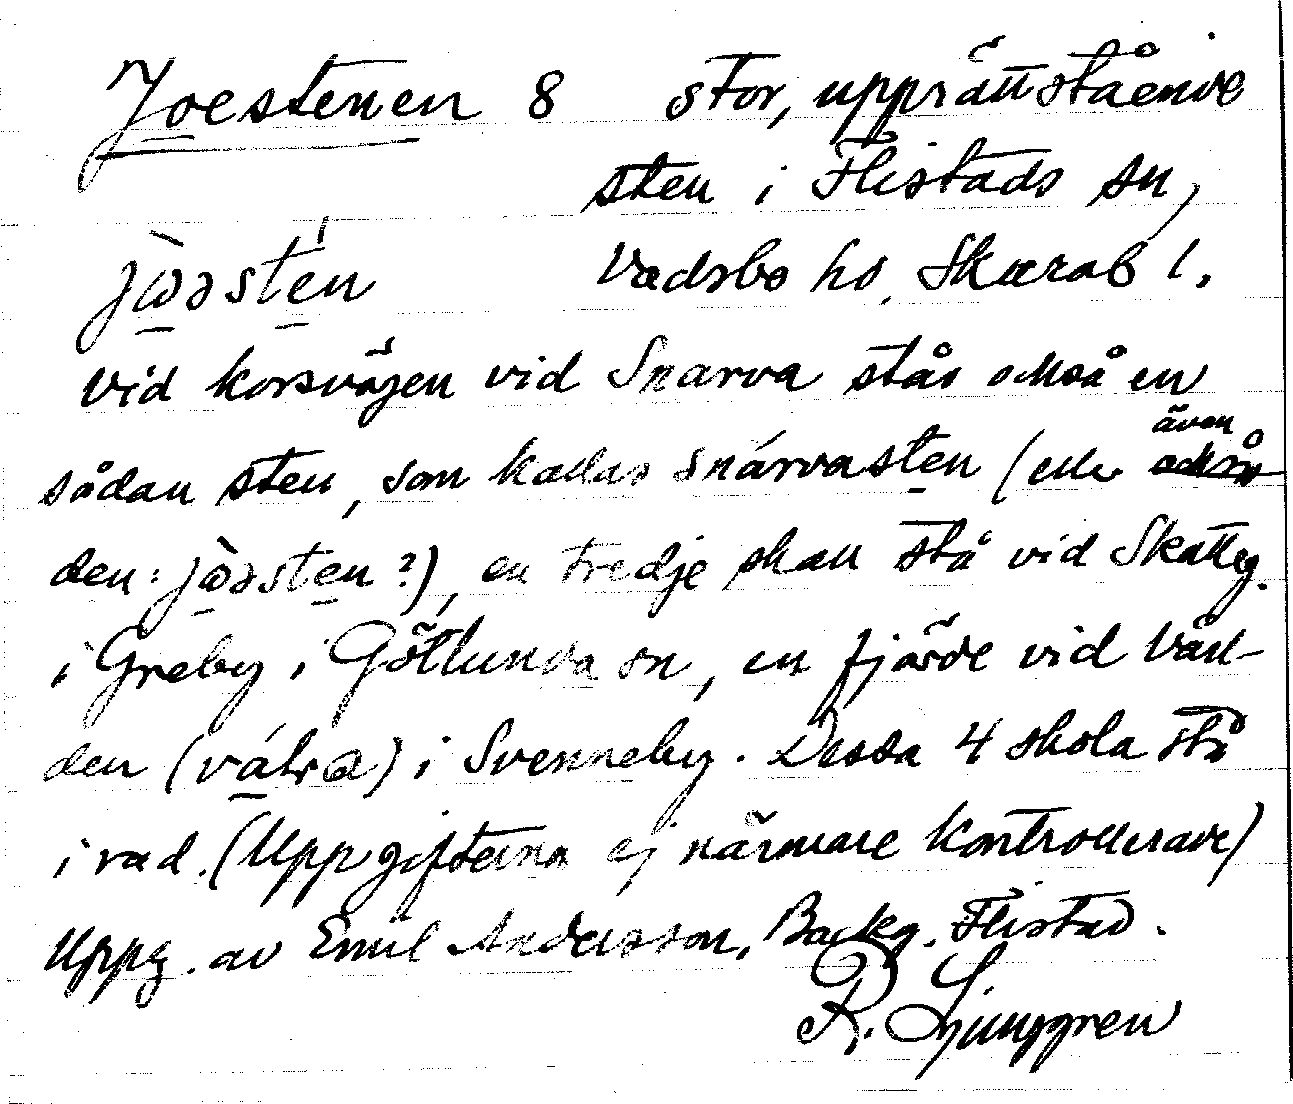 Joestenen 8 stor, upprättstående
sten i Flistads sn,
jòəstén Vadsbo hd, Skarab l.
Vid korsvägen vid Snarva står också en
sådan sten, som kallas snárvasten (eller även också
den: jòəsten?), en tredje skall stå vid Skatteg.
i Greby i Götlunda sn, en fjärde vid Vall-
den () i Svenneby. Dessa 4 skola stå
i rad. (Uppgifterna ej närmare kontrollerade)
Uppg. av Emil Andersson, Backg. Flistad.
R. Ljunggren